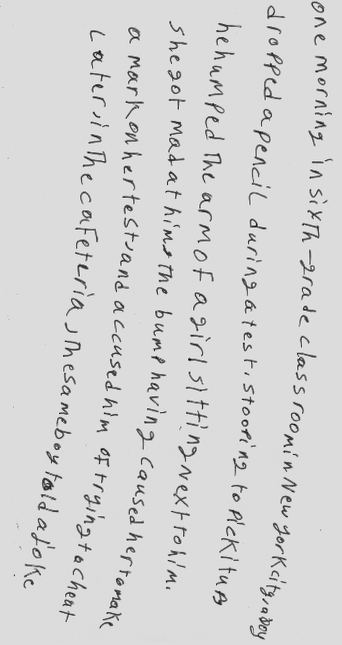 one morning in sixTh-grade classroom in New York city, a boy
dropped a pencil during a test. stooping to pick it up
he humped The arm of a girl sitting Next to him.
she got mad at him, The bump having caused her to make
a mark on her tests, and accused him of trying to cheat
Later, in The cafeteria, The same boy told a joke